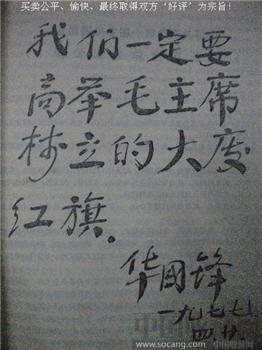 买卖公平、愉快、最终取得双方‘好评’为宗旨!
我们一定要
高举毛主席
树立的大庆
红旗。
华国锋
一九七七
四 廿
www.socang.com